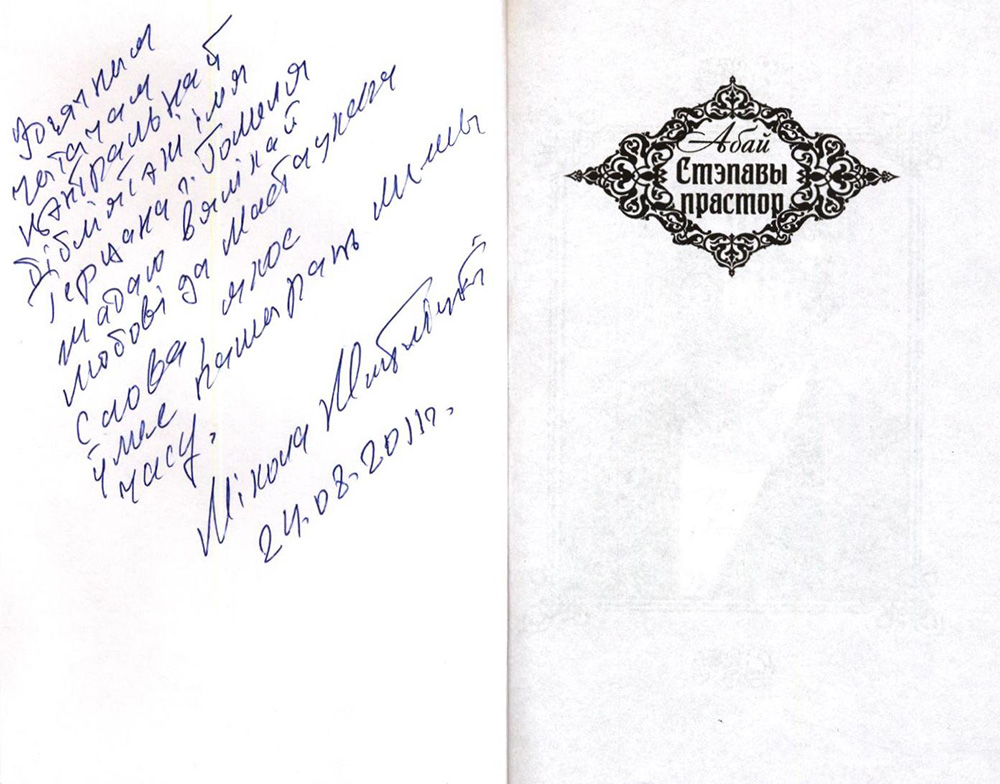 Удзячным
чытачам
цэнтральнай
бібліятэкі імя
Герцэна г. Гомеля
жадаю вялікай
любові да мастацкага
слова, якое
ўмее пашыраць межы
часу.
Мікола Мятліцкі
24.08.2011г.
Абай
Стэпавы
прастор